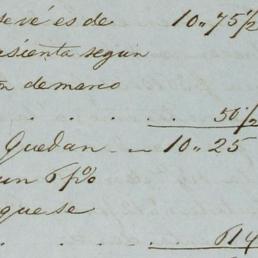 es de 10" 75 1/2
asienta segun
demarco
. . . . 50 1/2
Quedan - " 10" 25
un 6 p%
guese
. . . . 61